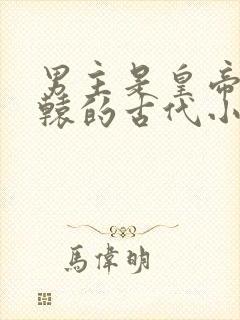 男主是皇帝
辕的古代小
馬偉明